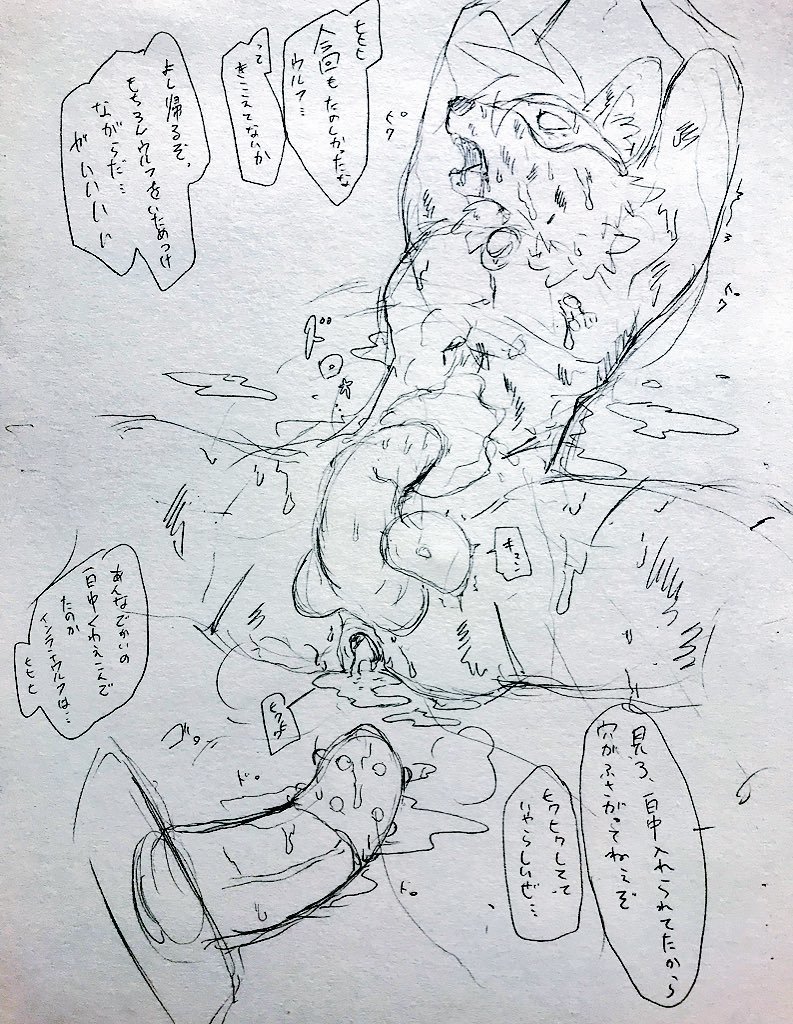 ヒヒヒ
今回もたのしかったな
ウルフ…
って
きこえてないか
よし帰るぞ、
もちろんウルフをいためつけ
ながらだ…
がいいいい
ピク
ピク
ズ
ロォ…
キュン
あんなでかいの
一日中くわえこんで
たのか
インラ
ウルフは…
ヒヒヒ
ヒクッ
ゴ。
ド。
ド。
見ろ、一日中入れられてたから
穴がふさがってねえぞ
ヒクヒクしてて
いやらしいぜ…